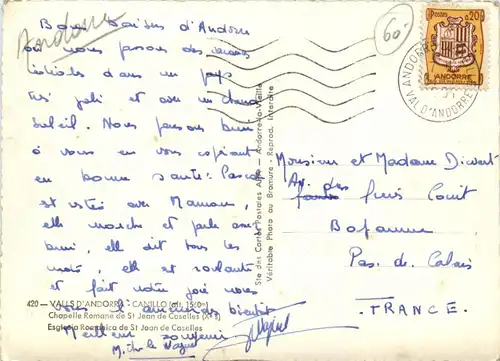 Andorre
Bons Baisers d'Andorre
où nous passons des vacances
idéales dans un pays
très joli et avec un chaud
soleil. Nous pensons bien
à vous en vous espérant
en bonne santé. Pascale
est restée avec Maman,
elle marche et parle aussi
bien, elle dit tous les
mots, elle est
et fait notre joie nous
vous l'amènerons bientôt
Meilleur souvenir
60
Postes 0,20
ANDORRE
ANDORRE
VAL D'ANDORRE
Monsieur et Madame
Av. des
Bapaume
Pas. de Calais
FRANCE.
Ste des Cartes Postales Apa — Andorre-la-Vieille
Véritable Photo au Bromure - Reprod. Interdite
420 - VALLS D'ANDORRA - CANILLO (alt. 1560m)
Chapelle Romane de St Jean de Caselles (XIe s)
Esglesia Romanica de St Joan de Caselles